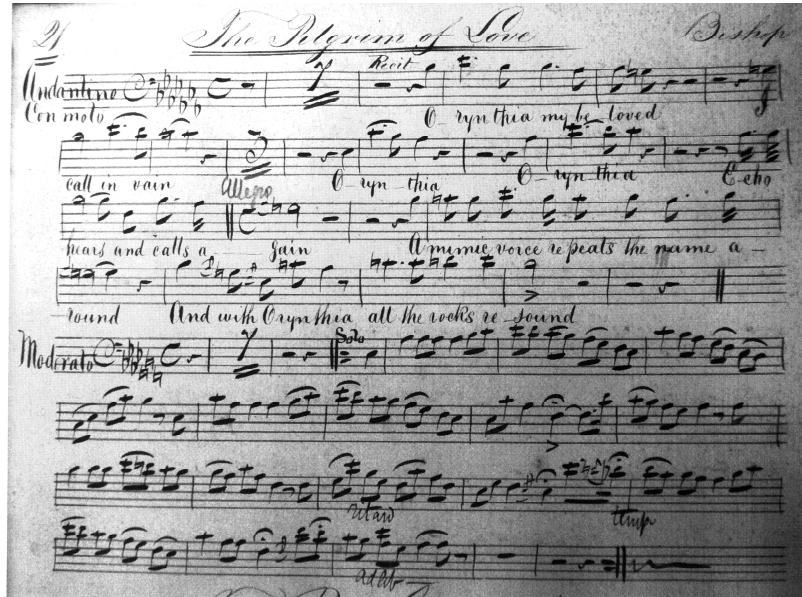 21 The Pilgrim of Love Bishop
Andantino 7 Recit
Con moto O - rynthia my be loved
call in vain Allegro O - ryn - thia O - ryn - thia Echo
hears and calls a - gain A mimic voice repeats the name a -
- round And with Orynthia all the rocks re - sound
Moderato 7 Solo
ritard
adlib